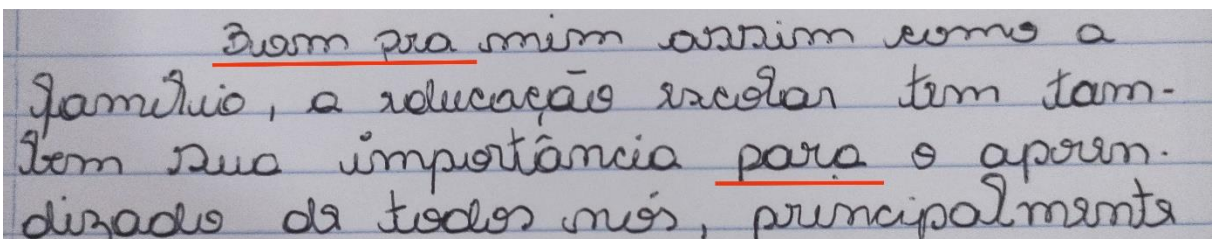 Buom pra mim assim como a
familuio, a educação escolar tem tam-
bem sua importância para o apren-
dizado de todos nós, principalmente